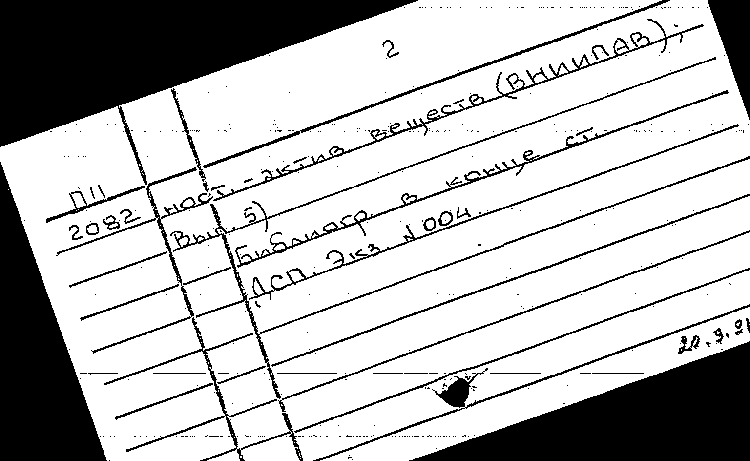 2
П11
2082 ност.-актив веществ (ВНИИПАВ);
Вып. 5)
Библиогр. в конце ст.
ДСП. Экз. N 004.